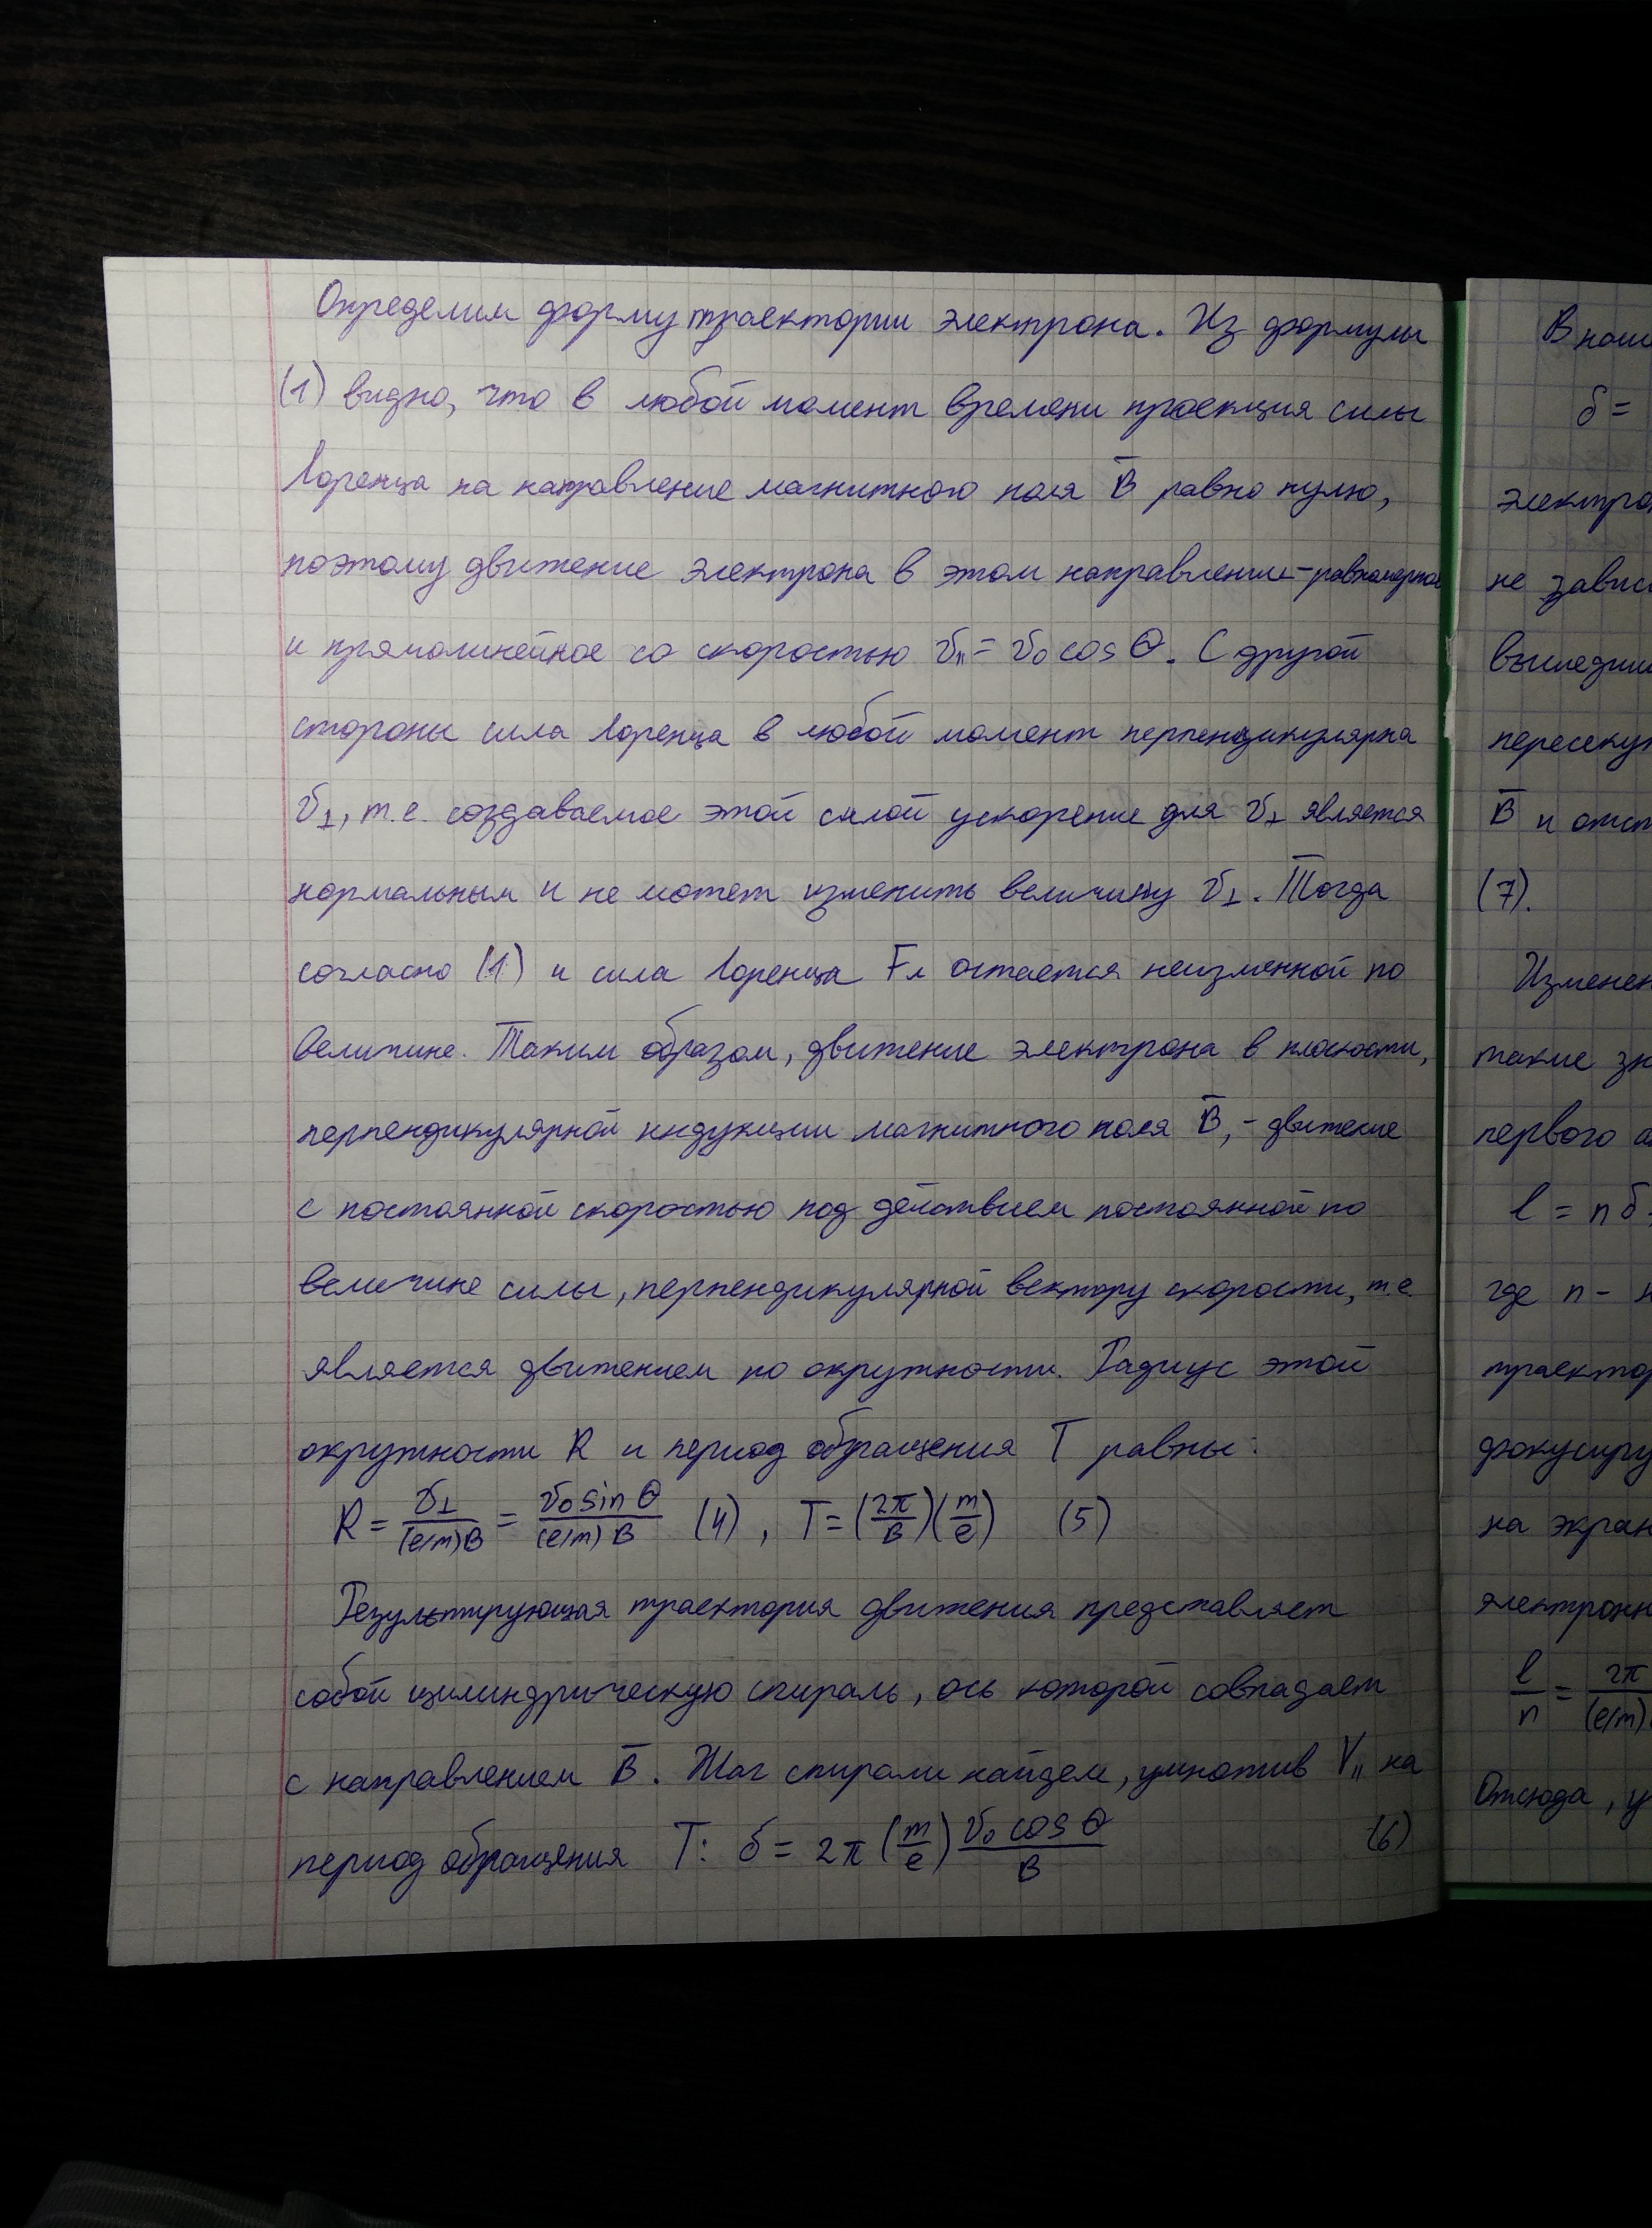 Определим форму траектории электрона. Из формулы
(1) видно, что в любой момент времени проекция силы
Лоренца на направление магнитного поля B̄ равно нулю,
поэтому движение электрона в этом направлении - равномерное
и прямолинейное со скоростью v₁₁ = v₀ cos Θ. С другой
стороны сила Лоренца в любой момент перпендикулярна
v⊥, т.е. создаваемое этой силой ускорение для v⊥ является
нормальным и не может изменить величину v⊥. Тогда
согласно (1) и сила Лоренца Fл остаётся неизменной по
величине. Таким образом, движение электрона в плоскости,
перпендикулярной индукции магнитного поля B̄, - движение
с постоянной скоростью под действием постоянной по
величине силы, перпендикулярной вектору скорости, т.е.
является движением по окружности. Радиус этой
окружности R и период обращения T равны:
R = v⊥/(e/m)B = v₀ sin Θ/(e/m) B (4), T = (2π/B)(m/e) (5)
Результирующая траектория движения представляет
собой цилиндрическую спираль, ось которой совпадает
с направлением B̄. Шаг спирали найдем, умножив V₁₁ на
период обращения T: δ = 2π (m/e) v₀ cos Θ/B (6)
В наш
δ =
электро
не завис
вышедши
пересеку
B̄ и отст
(7).
Изменен
такие зн
первого
l = n δ
где n -
траектор
фокусиру
на экран
электронн
l/n = 2π/(e/m)
Отсюда, у